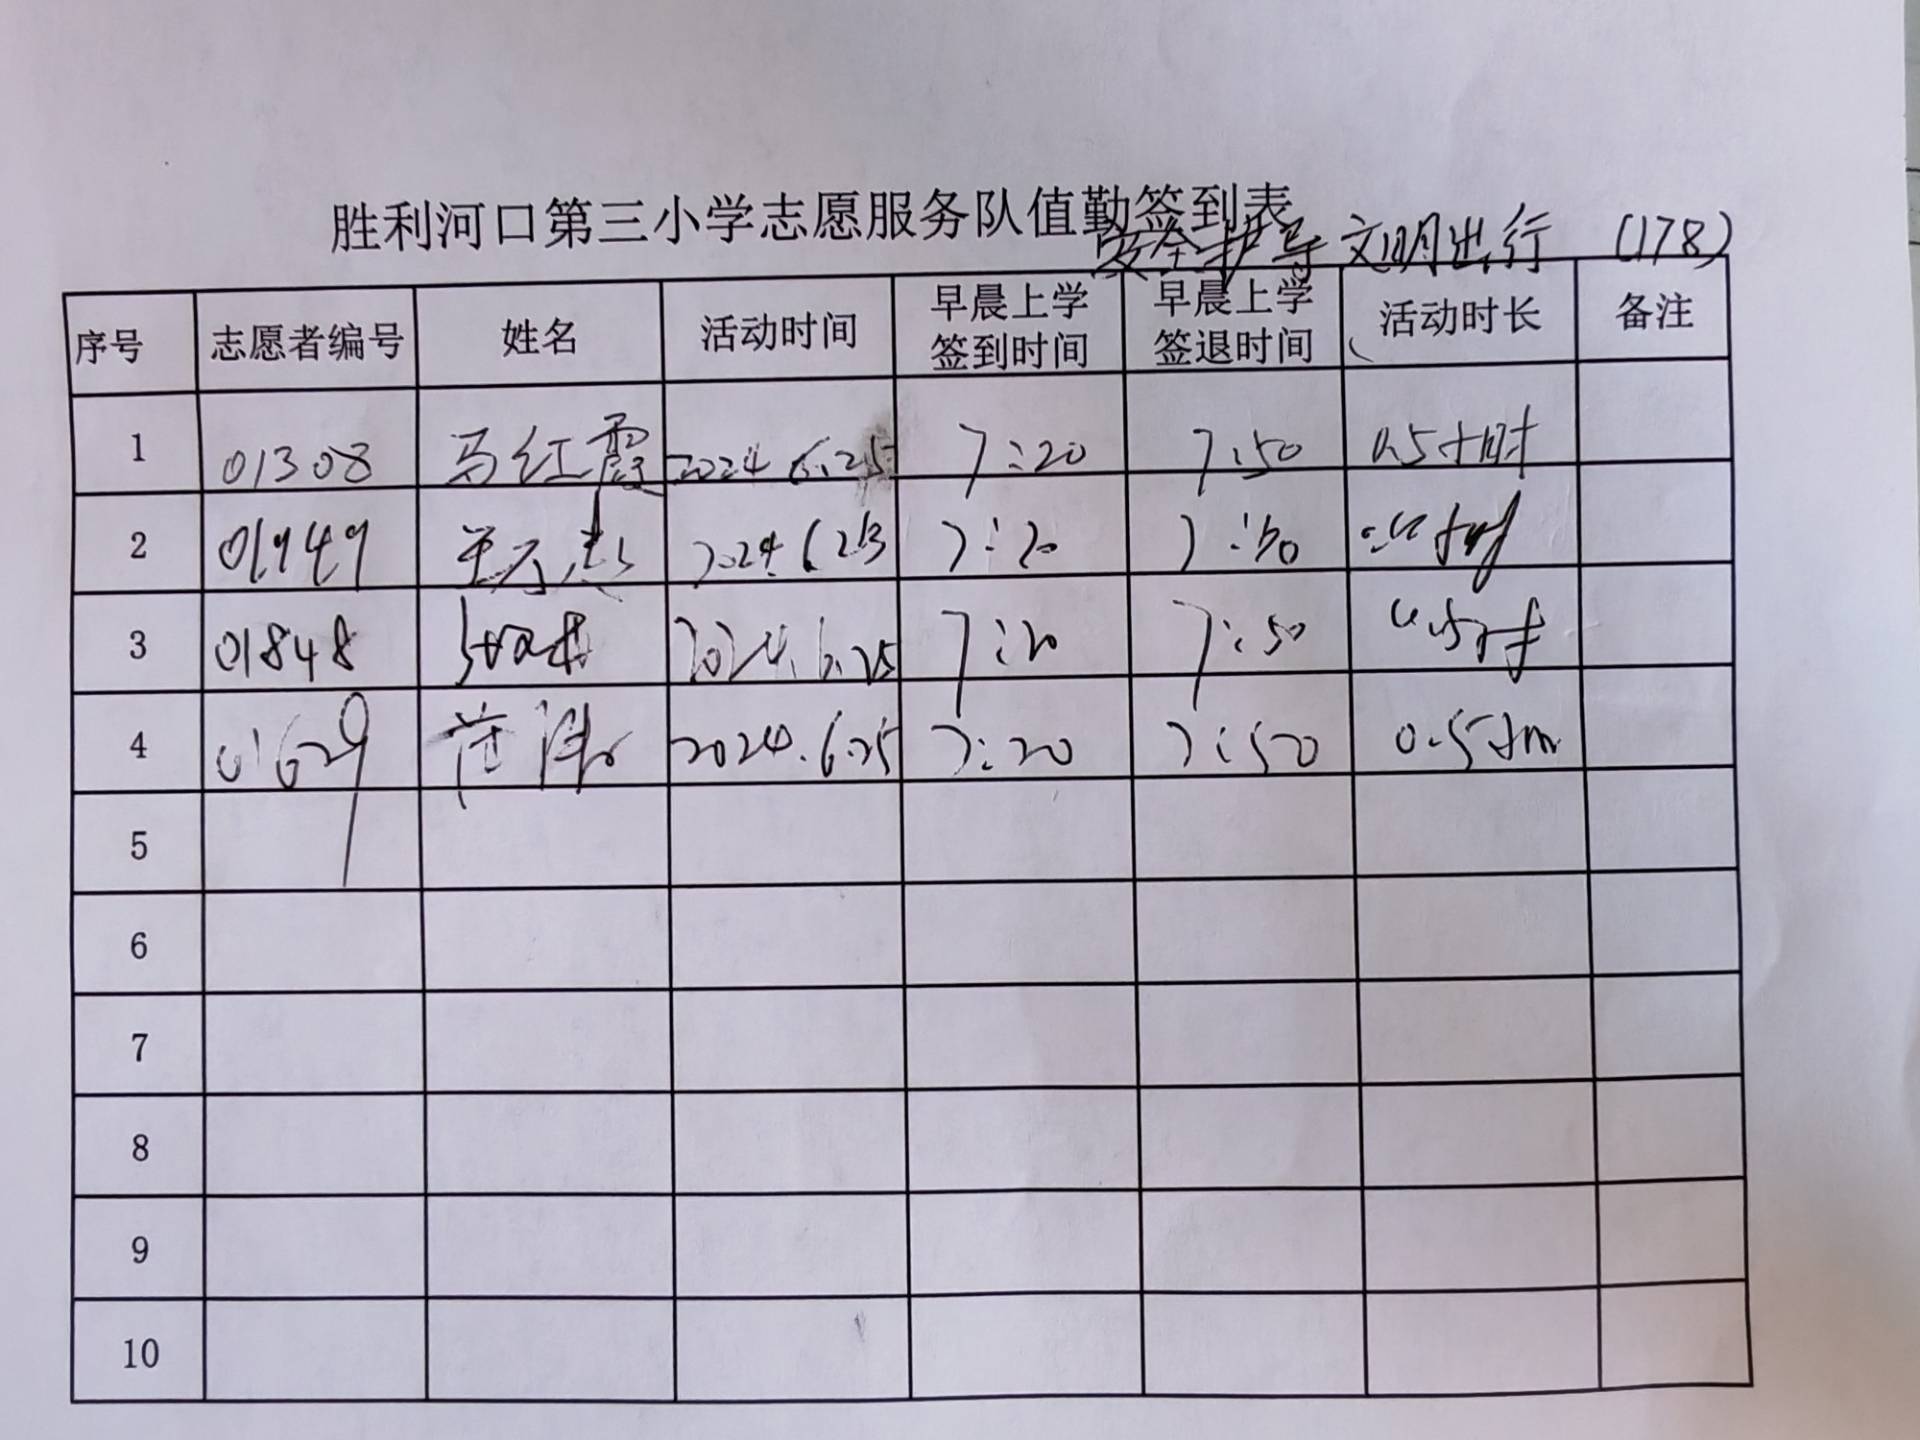 胜利河口第三小学志愿服务队值勤签到表
安全护导 文明出行 (178)
序号 志愿者编号 姓名 活动时间 早晨上学签到时间 早晨上学签退时间 活动时长 备注
1 01308 马红霞 2024.6.25 7:20 7:50 0.5小时
2 01949 2024.6.25 7:20 7:50
3 01848 2024.6.25 7:20 7:50 0.5小时
4 01629 范 2024.6.25 7:20 7:50 0.5小时
5
6
7
8
9
10